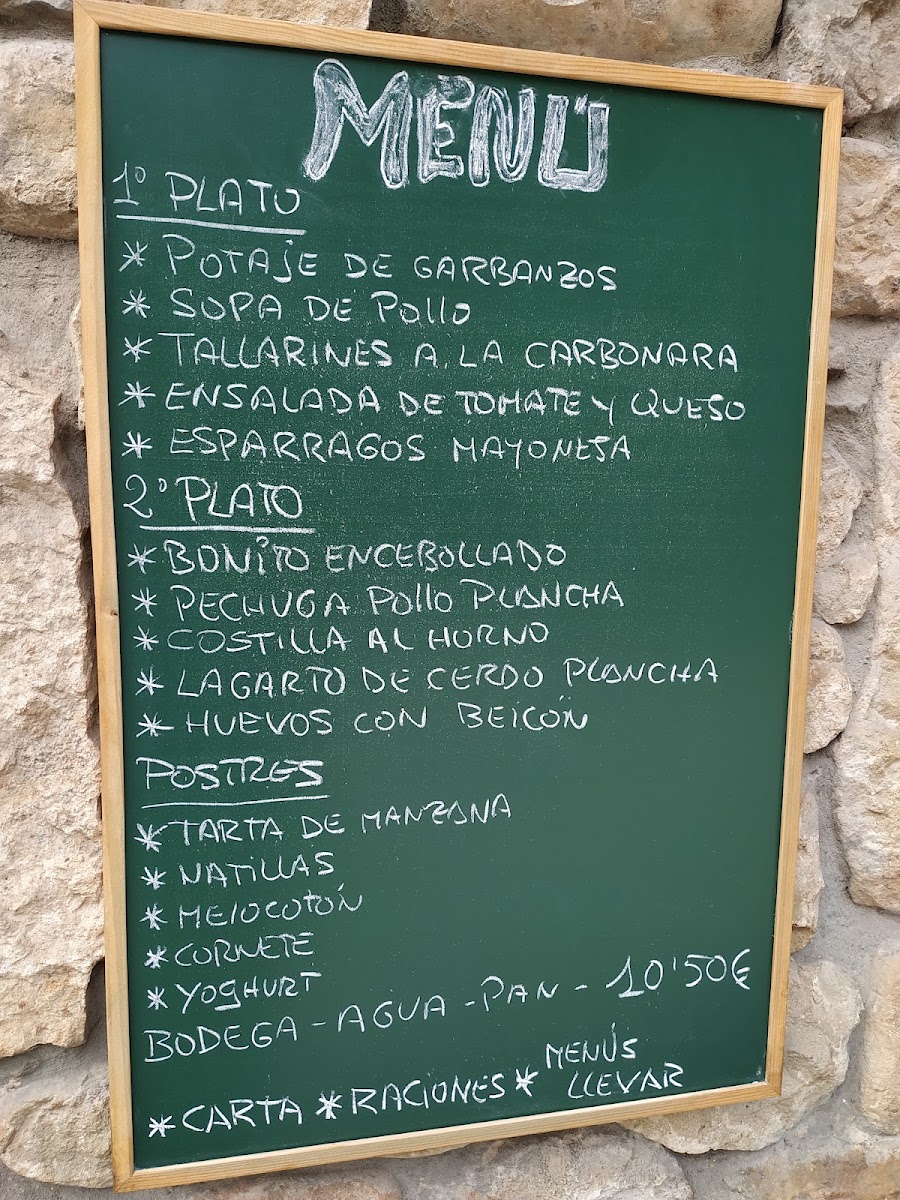 MENÚ
1º PLATO
* POTAJE DE GARBANZOS
* SOPA DE POLLO
* TALLARINES A LA CARBONARA
* ENSALADA DE TOMATE Y QUESO
* ESPARRAGOS MAYONESA
2º PLATO
* BONITO ENCEBOLLADO
* PECHUGA POLLO PLANCHA
* COSTILLA AL HORNO
* LAGARTO DE CERDO PLANCHA
* HUEVOS CON BEICON
POSTRES
* TARTA DE MANZANA
* NATILLAS
* MELOCOTÓN
* CORNETE
* YOGHURT
BODEGA - AGUA - PAN - 10'50€
* CARTA * RACIONES * MENÚS LLEVAR